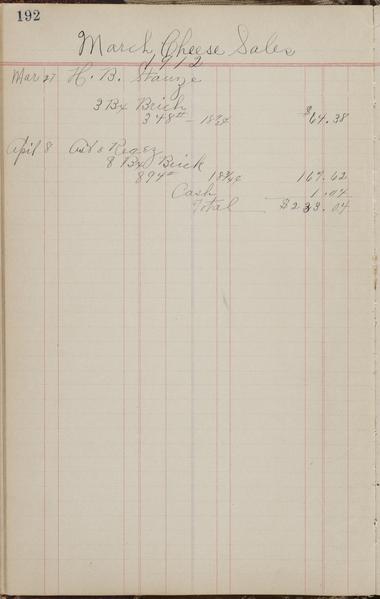 192
March Cheese Sales
1912
Mar 27 H. B.
3 Bx Brick
348# - 18½¢ $64.38
April 8 & Regez
8 Bx Brick
894# 18¾¢ 167.62
Cash 1.04
Total $233.04